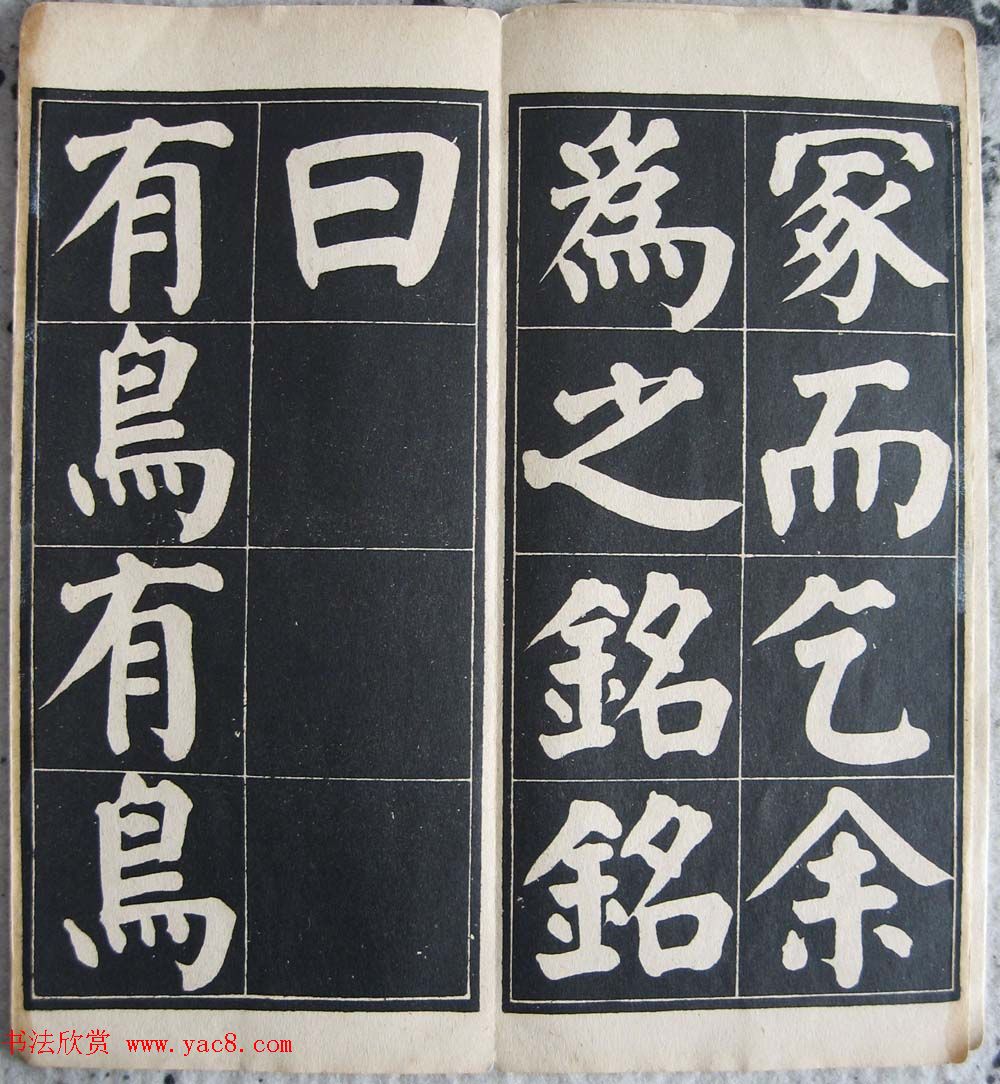 冢而乞余
爲之銘銘
曰
有鳥有鳥
书法欣赏 www.yac8.com